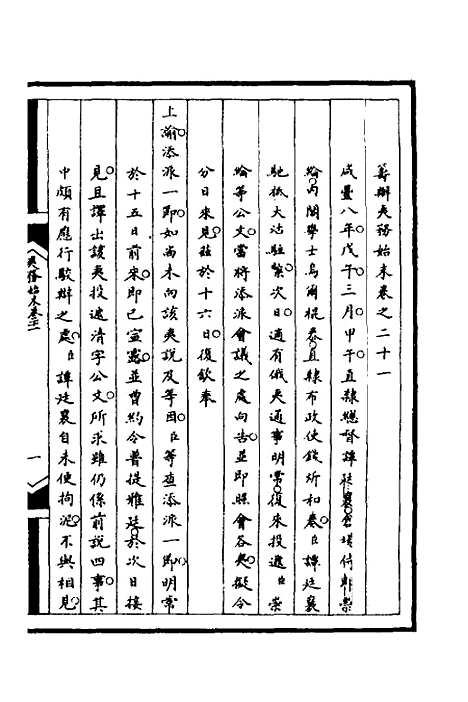 籌辦夷務始末卷之二十一
咸豐八年戊午三月甲午直隸總督譚廷襄倉場侍郎崇
綸內閣學士烏爾棍泰直隸布政使錢炘和奏臣譚廷襄
馳抵大沽駐紮次日適有俄夷通事明常復來投遞臣崇
綸等公文當將添派會議之處向告並即照會各夷擬令
分日來見茲於十六日復欽奉
上諭添派一節如尚未向該夷說及等因臣等查添派一節明常
於十五日前來即已宣露並曾約令普提雅廷於次日接
見且譯出該夷投遞清字公文所求雖仍係前說四事其
中頗有應行駁辯之處臣譚廷襄自未便拘泥不與相見
夷務始末卷二十一
一